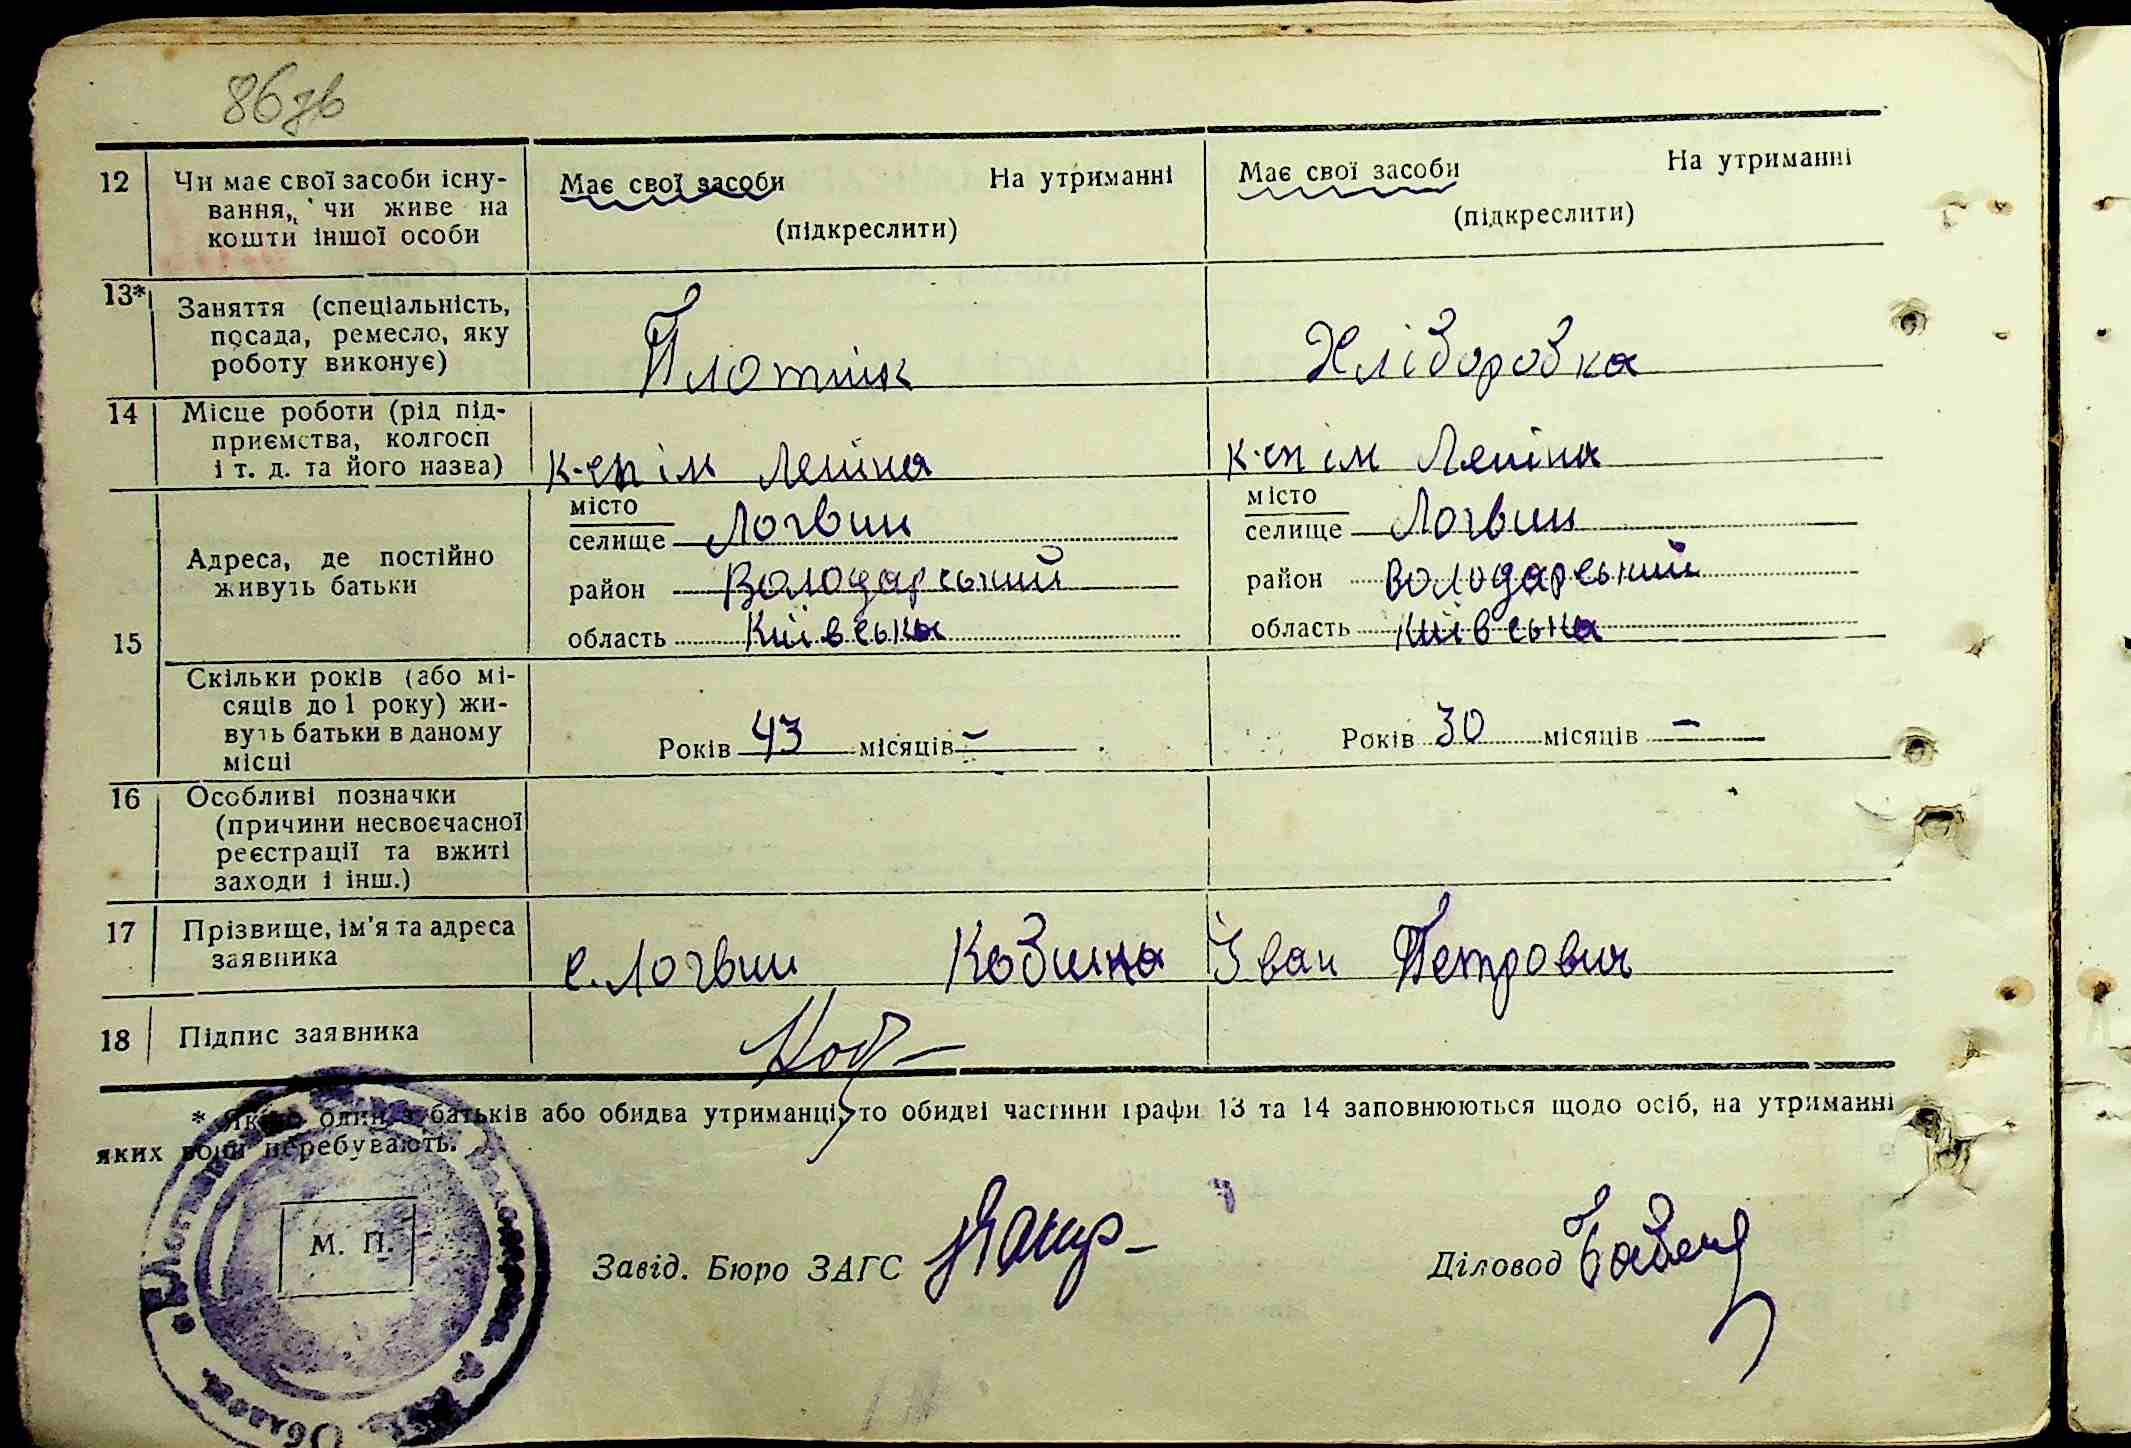 86зв
12 Чи має свої засоби існу-
вання, чи живе на
кошти іншої особи
Має свої засоби На утриманні
(підкреслити)
Має свої засоби На утриманні
(підкреслити)
13* Заняття (спеціальність,
посада, ремесло, яку
роботу виконує)
Плотнік
Хліборобка
14 Місце роботи (рід під-
приємства, колгосп
і т. д. та його назва)
к-сп ім Леніна
к-сп ім Леніна
15 Адреса, де постійно
живуть батьки
місто
селище Логвин
район Володарський
область Київська
місто
селище Логвин
район Володарський
область Київська
Скільки років (або мі-
сяців до 1 року) жи-
вуть батьки в даному
місці
Років 43 місяців –
Років 30 місяців –
16 Особливі позначки
(причини несвоєчасної
реєстрації та вжиті
заходи і інш.)
17 Прізвище, ім'я та адреса
заявника
с. Логвин Кобина Іван Петрович
18 Підпис заявника
* Якщо один з батьків або обидва утриманці, то обидві частини графи 13 та 14 заповнюються щодо осіб, на утриманні
яких вони перебувають.
М. П.
Завід. Бюро ЗАГС
Діловод